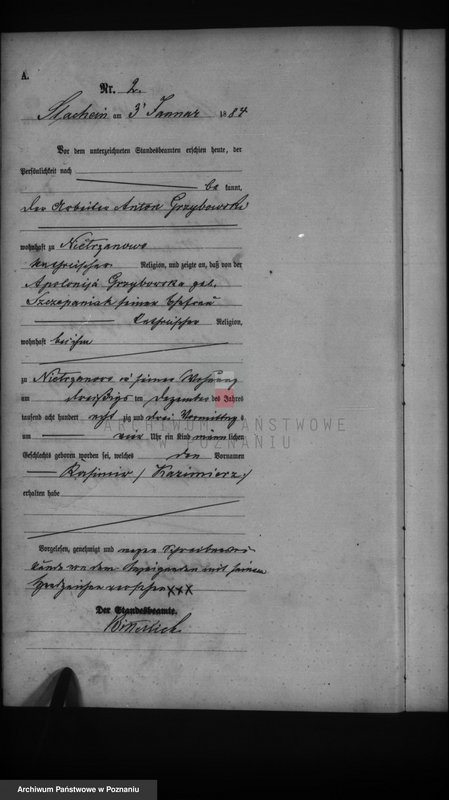 A.
Nr. 2.
am 3' Januar 1884
Vor dem unterzeichneten Standesbeamten erschien heute, der
Persönlichkeit nach
be kannt,
der Arbeiter Anton Grzybowski
wohnhaft zu Nietrzanowo
katholischer Religion, und zeigte an, daß von der
Apolonija Grzybowska geb.
Szczepaniak seiner Ehefrau
katholischer Religion,
wohnhaft bei ihm
zu Nietrzanowo in seiner Wohnung
am dreißigsten Dezember des Jahres
tausend acht hundert acht zig und drei Vormittags
um vier Uhr ein Kind männlichen
Geschlechts geboren worden sei, welches den Vornamen
Kasimir (Kazimierz)
erhalten habe
Vorgelesen, genehmigt und wegen Schreibens
von dem Anzeigenden mit seinem
Handzeichen versehen XXX
Der Standesbeamte.
ARCHIWUM PAŃSTWOWE
W POZNANIU
Archiwum Państwowe w Poznaniu